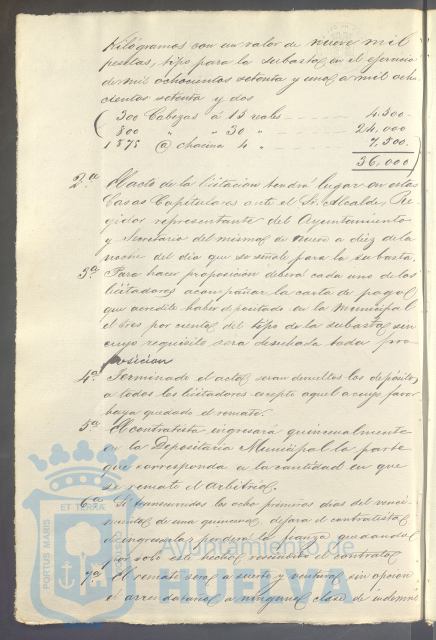 Kilógramos con un valor de nueve mil
pesetas, tipo para la subasta en el ejercicio
de mil ochocientos setenta y uno, a mil ocho
cientos setenta y dos
300 Cabezas á 15 reales 4.500
800 " " 30 " 24,000
1875 @ chacina 4 " 7.500
36,000
2.ª El acto de la licitacion tendrá lugar en estas
Casas Capitulares ante el Sr. Alcalde, Re
gidor representante del Ayuntamiento
y Secretario del mismo, de nueve a diez de la
noche del dia que se señale para la subasta.
3ª Para hacer proposicion deberá cada uno de los
licitadores acompañar la carta de pago
que acredite haber depositado en la municipal
el tres por ciento del tipo de la subasta, sin
cuyo requisito será desechada toda pro
posicion
4ª Terminado el acto, seran devueltos los depósitos
a todos los licitadores escepto aquel a cuyo favor
haya quedado el remate.
5ª El contratista ingresará quincenalmente
en la Depositaria Municipal la parte
que corresponda a la cantidad en que
se remate el Arbitrio.
6ª Si transcurridos los ocho primeros dias del venci
miento de una quincena, dejara el contratista
de ingresarla perderá la fianza quedando
por solo este hecho rescindido el contrato
7ª El remate será a suerte y ventura sin opcion
el arrendatario a ninguna clase de indemni
PORTUS MARIS ET TERRÆ
Ayuntamiento de
HUELVA